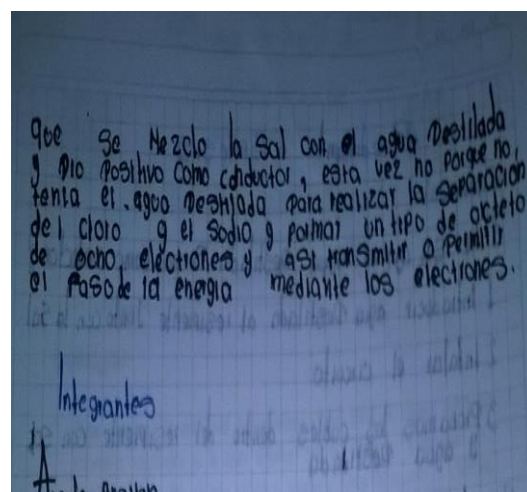 que se Mezclo la Sal con el agua Destilada
y Dio Positivo como conductor, esta vez no porque no,
tenia el agua Destilada para realizar la separación
del cloro y el sodio y formar un tipo de octeto
de ocho electrones y asi transmitir o Permitir
el Paso de la energia mediante los electrones.
Integrantes